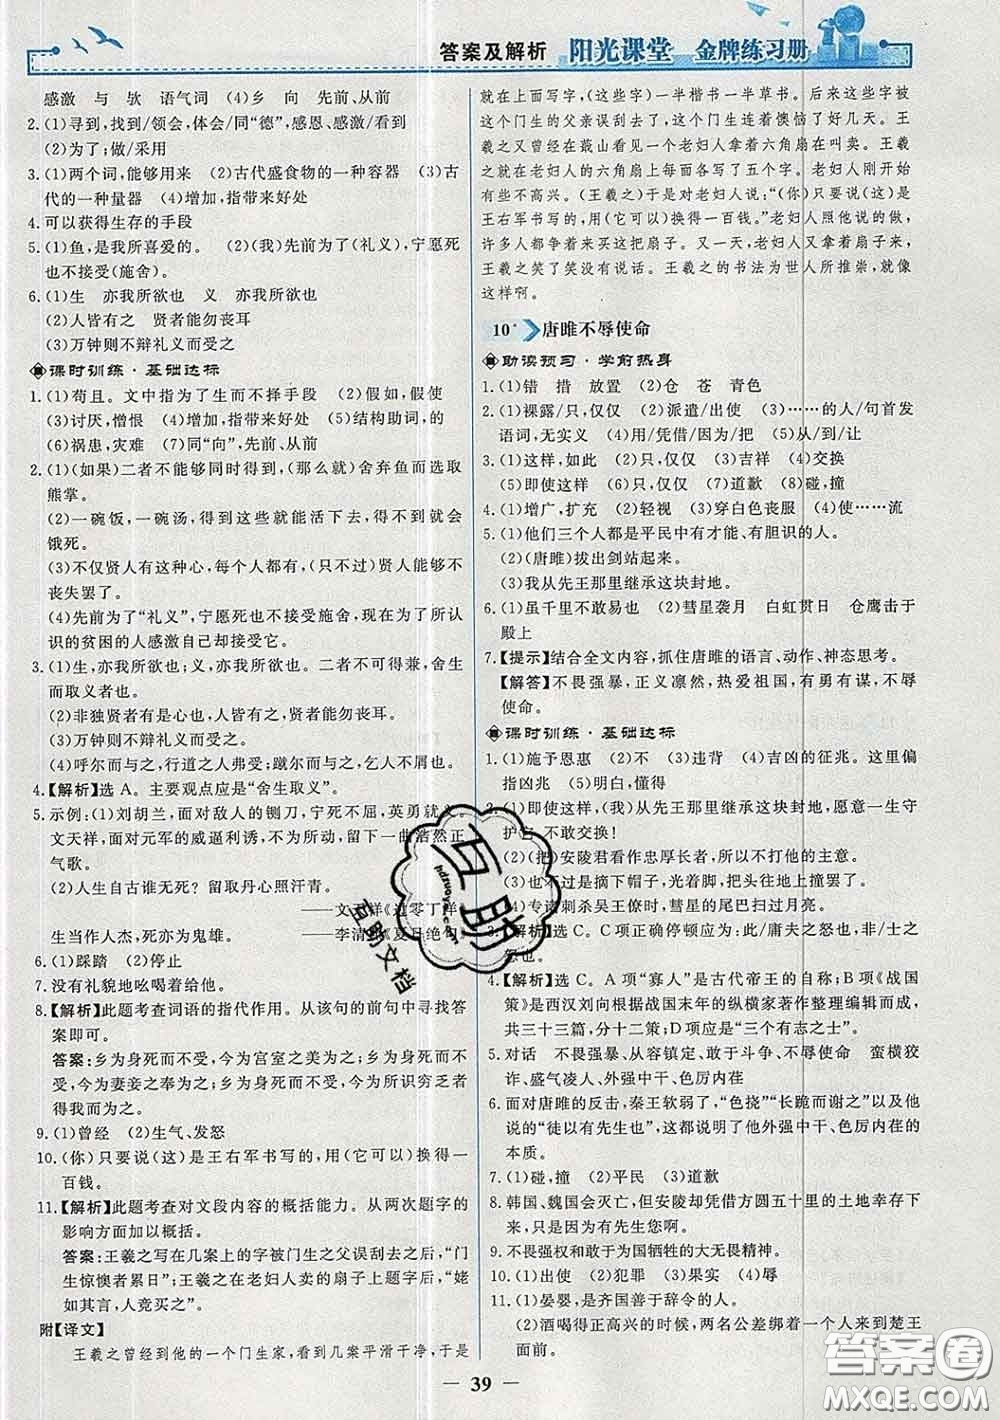 答案及解析 阳光课堂 金牌练习册
感激 与 欤 语气词 (4)乡 向 先前、从前
2.(1)寻到,找到/领会,体会/同“德”,感恩、感激/看到
(2)为了;做/采用
3.(1)两个词,能够用来 (2)古代盛食物的一种容器 (3)古
代的一种量器 (4)增加,指带来好处
4.可以获得生存的手段
5.(1)鱼,是我所喜爱的。 (2)(我)先前为了(礼义),宁愿死
也不接受(施舍)。
6.(1)生 亦我所欲也 义 亦我所欲也
(2)人皆有之 贤者能勿丧耳
(3)万钟则不辩礼义而受之
课时训练·基础达标
1.(1)苟且。文中指为了生而不择手段 (2)假如,假使
(3)讨厌,憎恨 (4)增加,指带来好处 (5)结构助词,的
(6)祸患,灾难 (7)同“向”,先前、从前
2.(1)(如果)二者不能够同时得到,(那么就)舍弃鱼而选取
熊掌。
(2)一碗饭,一碗汤,得到这些就能活下去,得不到就会
饿死。
(3)不仅贤人有这种本性,每个人都有,只不过贤人能够不
丧失罢了。
(4)先前为了“礼义”,宁愿死也不接受施舍,现在为了所认
识的贫困的人感激自己却接受它。
3.(1)生,亦我所欲也;义,亦我所欲也。二者不可得兼,舍生
而取义者也。
(2)非独贤者有是心也,人皆有之,贤者能勿丧耳。
(3)万钟则不辩礼义而受之。
(4)呼尔而与之,行道之人弗受;蹴尔而与之,乞人不屑也。
4.【解析】选 A。主要观点应是“舍生取义”。
5.示例:(1)刘胡兰,面对敌人的铡刀,宁死不屈,英勇就义。
文天祥,面对元军的威逼利诱,不为所动,留下一曲浩然正
气歌。
(2)人生自古谁无死?留取丹心照汗青。
——文天祥《过零丁洋》
生当作人杰,死亦为鬼雄。 ——李清照《夏日绝句》
6.(1)踩踏 (2)停止
7.没有礼貌地吆喝着给他。
8.【解析】此题考查词语的指代作用。从该句的前句中寻找答
案即可。
答案:乡为身死而不受,今为宫室之美为之;乡为身死而不
受,今为妻妾之奉为之;乡为身死而不受,今为所识穷乏者
得我而为之。
9.(1)曾经 (2)生气、发怒
10.(你)只要说(这)是王右军书写的,用(它可以)换得一
百钱。
11.【解析】此题考查对文段内容的概括能力。从两次题字的
影响方面加以概括。
答案:王羲之写在几案上的字被门生之父误刮去后,“门
生惊懊者累日”;王羲之在老妇人卖的扇子上题字后,“姥
如其言,人竞买之”。
附【译文】
王羲之曾经到他的一个门生家,看到几案平滑干净,于是
就在上面写字,(这些字)一半楷书一半草书。后来这些字被
这个门生的父亲误刮去了,这个门生连着懊恼了好几天。王
羲之又曾经在蕺山看见一个老妇人拿着六角扇在叫卖。王羲
之就在老妇人的六角扇上面各写了五个字。老妇人刚开始
有些不高兴。(王羲之)于是对老妇人说:“(你)只要说(这)是
王右军书写的,用(它可以)换得一百钱。”老妇人照他说的做,
许多人都争着来买这把扇子。又一天,老妇人又拿着扇子来,
王羲之笑了笑没有说话。王羲之的书法为世人所推崇,就像
这样啊。
10* 唐雎不辱使命
助读预习·学前热身
1.(1)错 措 放置 (2)仓 苍 青色
2.(1)裸露/只,仅仅 (2)派遣/出使 (3)……的人/句首发
语词,无实义 (4)用/凭借/因为/把 (5)从/到/让
3.(1)这样,如此 (2)只,仅仅 (3)吉祥 (4)交换
(5)即使这样 (6)只,仅仅 (7)道歉 (8)碰,撞
4.(1)增广,扩充 (2)轻视 (3)穿白色丧服 (4)使……流
5.(1)他们三个人都是平民中有才有、有胆识的人。
(2)(唐雎)拔出剑站起来。
(3)我从先王那里继承这块封地。
6.(1)虽千里不敢易也 (2)彗星袭月 白虹贯日 仓鹰击于
殿上
7.【提示】结合全文内容,抓住唐雎的语言、动作、神态思考。
【解答】不畏强暴,正义凛然,热爱祖国,有勇有谋,不辱
使命。
课时训练·基础达标
1.(1)施予恩惠 (2)不 (3)违背 (4)吉凶的征兆。这里偏
指凶兆 (5)明白,懂得
2.(1)即使这样,(我)从先王那里继承这块封地,愿意一生守
护它,不敢交换!
(2)(把)安陵君看作忠厚长者,所以不打他的主意。
(3)也不过是摘下帽子,光着脚,把头往地上撞罢了。
(4)专诸刺杀吴王僚时,彗星的尾巴扫过月亮。
3.【解析】选 C。C 项正确停顿应为:此/庸夫之怒也,非/士之
怒也。
4.【解析】选 C。A 项“寡人”是古代帝王的自称;B 项《战国
策》是西汉刘向根据战国末年的纵横家著作整理编辑而成,
共三十三篇,分十二策;D 项应是“三个有志之士”。
5.对话 不畏强暴、从容镇定、敢于斗争、不辱使命 蛮横狡
诈、盛气凌人、外强中干、色厉内荏
6.面对唐雎的反击,秦王软弱了,“色挠”“长跪而谢之”以及他
说的“徒以有先生也”,突出表现了他外强中干、色厉内荏的
本质。
7.(1)碰,撞 (2)平民 (3)道歉
8.韩国、魏国会灭亡,但安陵却凭借方圆五十里的土地幸存下
来,只因为有先生您啊。
9.不畏强权和敢于为国牺牲的大无畏精神。
10.(1)出使 (2)犯罪 (3)果实 (4)辱
11.(1)晏婴,是齐国善于辞令的人。
(2)酒喝得正高兴的时候,两名公差绑着一个人来到楚王
面前。
39
互助
百朗文档
答案圈
MXQE.COM